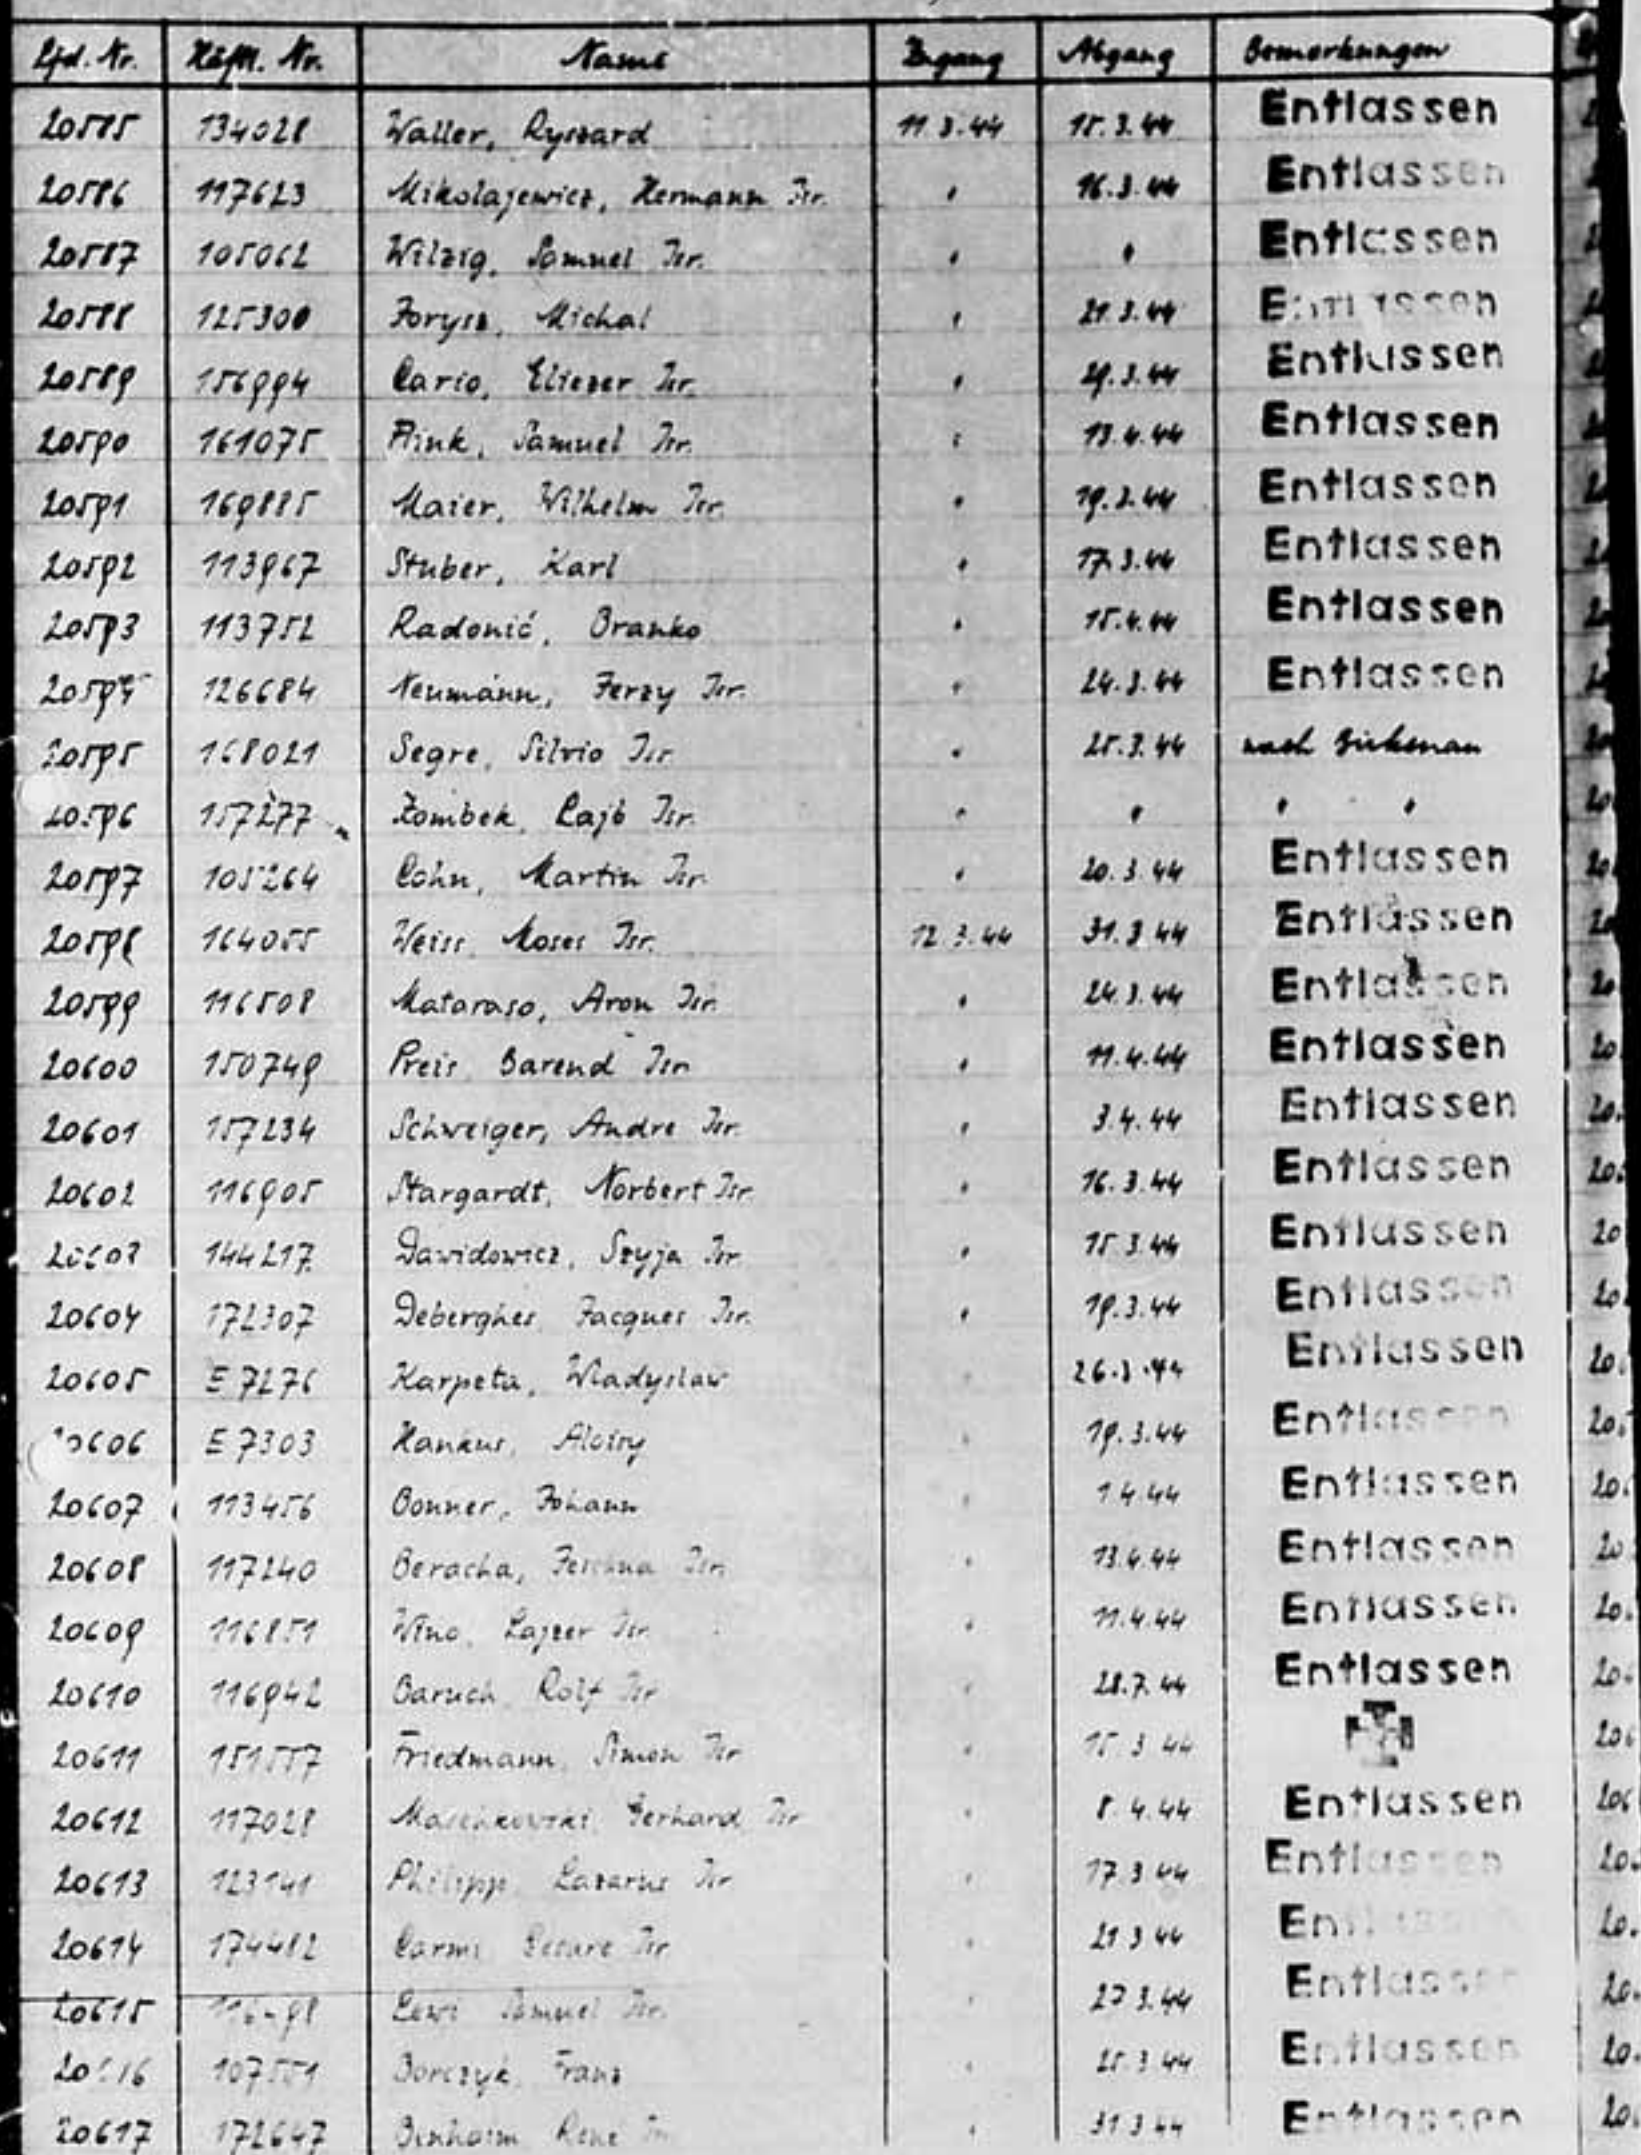 Lfd. Nr. Häftl. Nr. Name Zugang Abgang Bemerkungen
20585 134028 Waller, Ryszard 11.3.44 15.3.44 Entlassen
20586 117623 Mikolajewicz, Hermann Isr. " 16.3.44 Entlassen
20587 105062 Wilzig, Samuel Isr. " " Entlassen
20588 125300 Forysz, Michal " 21.3.44 Entlassen
20589 156994 Cario, Eliezer Isr. " 29.3.44 Entlassen
20590 161075 Flink, Samuel Isr. " 13.4.44 Entlassen
20591 169885 Maier, Wilhelm Isr. " 19.3.44 Entlassen
20592 113967 Stuber, Karl " 17.3.44 Entlassen
20593 113752 Radonić, Branko " 15.4.44 Entlassen
20594 126684 Neumann, Jerzy Isr. " 24.3.44 Entlassen
20595 168021 Segre, Silvio Isr. " 25.3.44 nach Birkenau
20596 157277 Zombek, Lajb Isr. " " " "
20597 105264 Cohn, Martin Isr. " 20.3.44 Entlassen
20598 164055 Weiss, Moses Isr. 12.3.44 31.3.44 Entlassen
20599 116508 Mataraso, Aron Isr. " 24.3.44 Entlassen
20600 150749 Preis, Barend Isr. " 11.4.44 Entlassen
20601 157234 Schweiger, Andre Isr. " 3.4.44 Entlassen
20602 116905 Stargardt, Norbert Isr. " 16.3.44 Entlassen
20603 144217 Dawidowicz, Szyja Isr. " 15.3.44 Entlassen
20604 172307 Deberghes, Jacques Isr. " 19.3.44 Entlassen
20605 E 7276 Karpeta, Wladyslaw " 26.3.44 Entlassen
20606 E 7303 Hankus, Aloisy " 19.3.44 Entlassen
20607 113456 Bonner, Johann " 1.4.44 Entlassen
20608 117240 Beracha, Isr. " 13.4.44 Entlassen
20609 116851 Wino, Lajzer Isr. " 11.4.44 Entlassen
20610 116942 Baruch, Rolf Isr. " 28.7.44 Entlassen
20611 151557 Friedmann, Simon Isr. " 15.3.44
20612 117028 Gerhard Isr. " 8.4.44 Entlassen
20613 123141 Philipp, Lazarus Isr. " 17.3.44 Entlassen
20614 174482 Carmi, Cesare Isr. " 21.3.44 Entlassen
20615 Lewi, Samuel Isr. " 27.3.44 Entlassen
20616 Borczyk, Franz " 25.3.44 Entlassen
20617 172647 René Isr. " 31.3.44 Entlassen